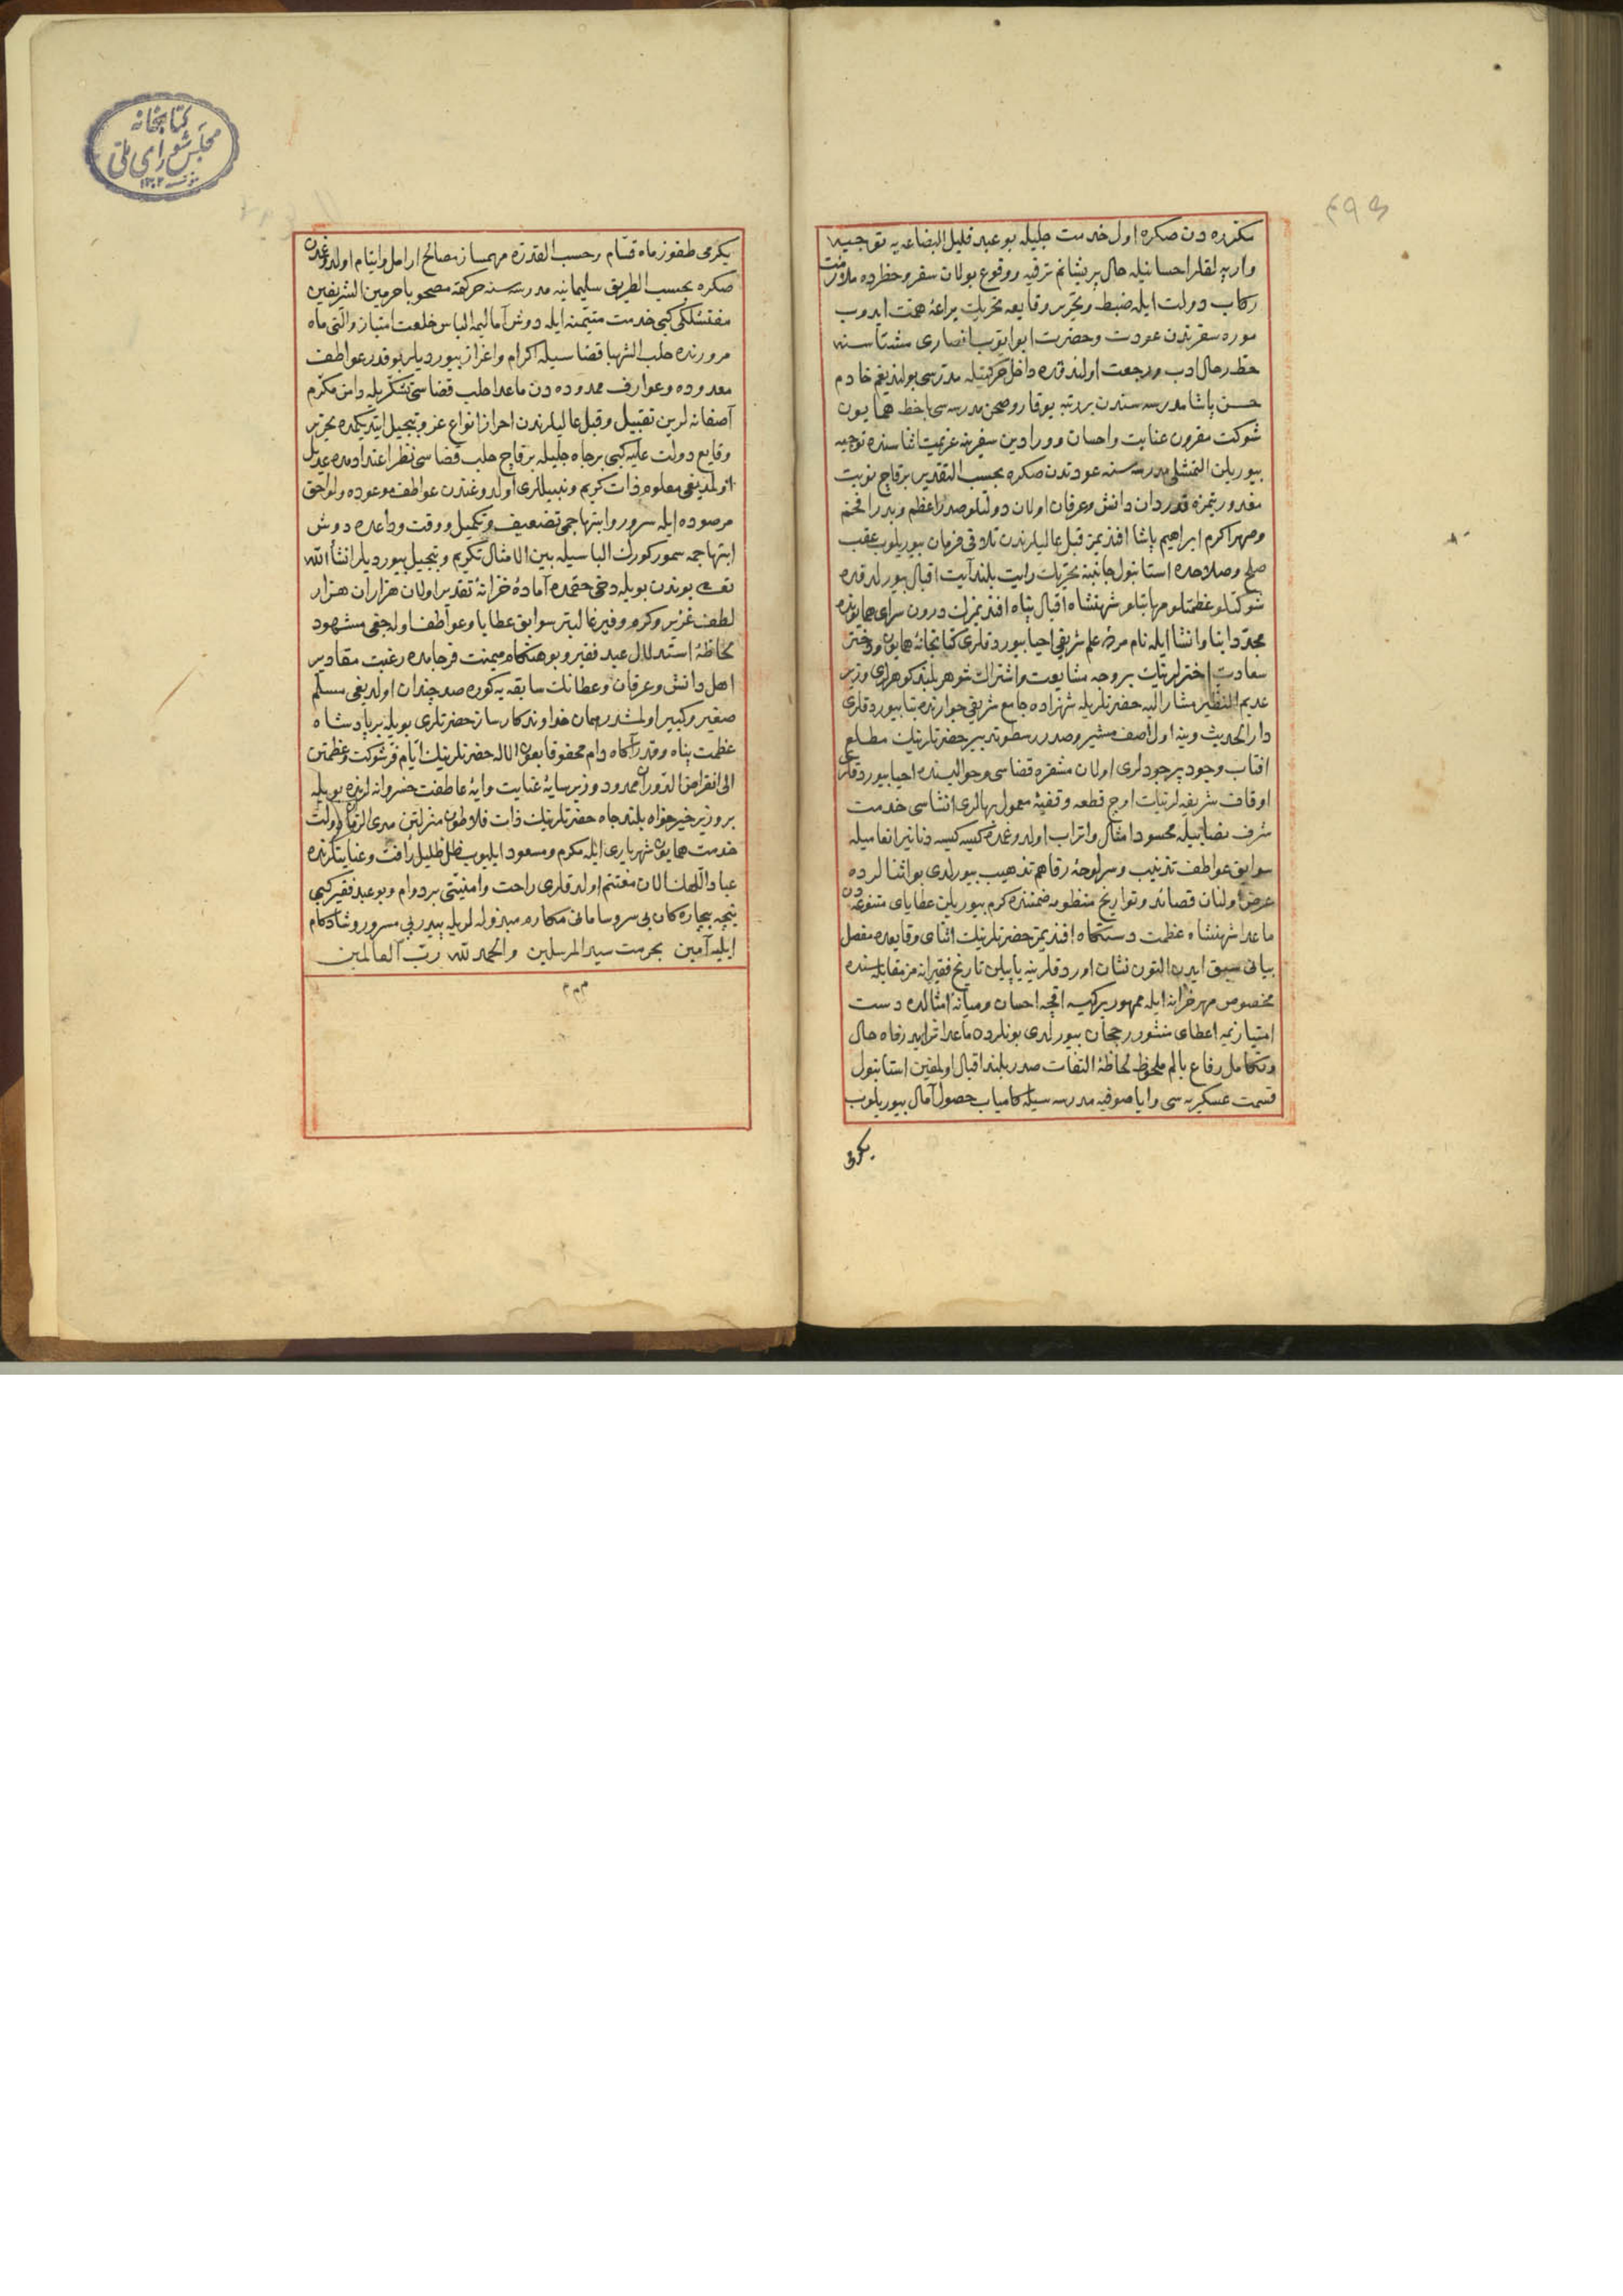 ۴۹۵
صکره اول خدمت جلیله بو عبد قلیل البضاعه یه توجیه
وارپه لقلر احسانیله حال پریشانم ترفیه ووقوع بولان سفر وحظرده ملازمت
رکاب دولت ایله ضبط وتحریر وقایعه تحریک یراعهٔ همت ایدوب
موره سفرندن عودت وحضرت ابو ایوب انصاری مشتاسنه
حط رحال ادب ورجعت اولندقده داخل حرکتیله مدرسی بولندیغم خادم
حسن پاشا مدرسه سندن بر رتبه یوقارو صحن مدرسه سی با خط همایون
شوکت مقرون عنایت واحسان وورادین سفرینه عزیمت اثناسنده توجیه
بیوریلن التمشلی مدرسه سنه عودتدن صکره بحسب التقدیر برقاچ نوبت
مغدوریتمزه قدردان دانش وعرفان اولان دولتلو صدر اعظم وبدر افخم
وصهر اکرم ابراهیم پاشا افندیمز قبل عالیلرندن تلافی فرمان بیوریلوب عقب
صلح وصلاحده استانبول جانبنه تحریک رایت بلند آیت اقبال بیورلدقده
شوکتلو عظمتلو مهابتلو شهنشاه اقبال پناه افندیمزک درون سرای همایونده
مجددا بنا وانشا ایله نام مرده علم شریفی احیا بیوردقلری کتابخانهٔ همایون ودختر
سعادت اخترلرینک بروجه مشایعت واشتراک شوهر بلند کوهرلری وزیر
عدیم النظیر مشار الیه حضرتلریله شهزاده جامع شریفی جوارنده بنا بیوردقلری
دار الحدیث وینه اول آصف مشیر وصدر رسطو تدبیر حضرتلرینک مطلع
افتاب وجود پرجودلری اولان مشقره قضاسی وحوالیسنده احیا بیوردقلری
اوقاف شریفه لرینک اوچ قطعه وقفیهٔ معمول بهالری انشاسی خدمت
شرف بضاعتیله محسود امثال واتراب اولدوغمده کیسه کیسه دنانیر انعامیله
سوابق عواطف تذنیب وسرلوحهٔ رفاهم تذهیب بیورلدی بو اثنالرده
عرض اولنان قصائد وتواریخ منظومه ضمننده کرم بیوریلن عطایای متنوعه دن
ماعدا شهنشاه عظمت دستکاه افندیمز حضرتلرینک اثنای وقایعده مفصل
بیانی سبق ایدن التون نشان اوردقلرینه یاپیلن تاریخ فقیرانه مز مقابله سنده
مخصوص مهر خزانه ایله ممهور بر کیسه اقچه احسان ومیانهٔ امثالده دست
امتیازیمه اعطای منشور رجحان بیورلدی بونلردن ماعدا تزاید رفاه حال
وتکامل رفاع بالم ملحوظ لحاظهٔ التفات صدر بلند اقبال اولمغین استانبول
قسمت عسکریه سی وایاصوفیه مدرسه سیله کامیاب حصول آمال بیوریلوب
یکرمی
کتابخانه
مجلس شورای ملی
یکرمی طقوز ماه قسام وحسب القدره مهمساز مصالح ارامل وایتام اولدوغمدن
صکره بحسب الطریق سلیمانیه مدرسه سنه حرکتله مصحوبا حرمین الشریفین
مفتشلکی کبی خدمت متیمنه ایله دوش آمالیمه الباس خلعت امتیاز والتی ماه
مرورنده حلب الشهبا قضاسیله اکرام واعزاز بیوردیلر بو قدر عواطف
معدوده وعوارف ممدوده دن ماعدا حلب قضاسی تشکریله دامن مکرم
آصفانه لرین تقبیل وقبل عالیلرندن احراز انواع عز وتبجیل ایتدیکمده تحریر
وقایع دولت علیه کبی بر جاه جلیله برقاچ حلب قضاسی نظر اعتدادمده عدیل
اولمدیغی معلوم ذات کریم ونبیللری اولدوغندن عواطف موعوده ولواحق
مرصوده ایله سرور وابتهاجمی تضعیف وتکمیل ووقت وداعده دوش
ابتهاجمه سمور کورک الباسیله بین الامثال تکریم وتبجیل بیوردیلر انشاء الله
تعالی بوندن بویله دخی حقمده آمادهٔ خزانهٔ تقدیر اولان هزاران هزار
لطف عزیز وکرم وفیر غالبتر سوابق عطایا وعواطف اوله جغی مشهود
لحاظهٔ استدلال عبد فقیر وبو هنکام میمنت فرجامده رغبت مقادیر
اهل دانش وعرفان وعطانک سابقه یه کوره صد چندان اولدیغی مسلم
صغیر وکبیر اولمشدر همان خداوند کارساز حضرتلری بویله بر پادشاه
عظمت پناه وقدر آکاه دام محفوفا بعون الاله حضرتلرینک ایام فر شوکت وعظمتن
الی انقراض الدوران ممدود وزیر سایهٔ عنایت وایهٔ عاطفت خسروانه لرنده بویله
بر وزیر خیرخواه بلند جاه حضرتلرینک ذات فلاطون منزلتن مدی الزمان دولت
خدمت همایون شهریاری ایله مکرم ومسعود ایلیوب ظل ظلیل رأفت وعنایتلرنده
عباد اللهک الان مغتنم اولدقلری راحت وامنیتی بردوام وبو عبد فقیر کبی
نیجه بیچارکان بی سر وسامانی مکارم مبذوله لریله پیدرپی مسرور وشادکام
ایلیه آمین بحرمت سید المرسلین والحمد لله رب العالمین
م م م